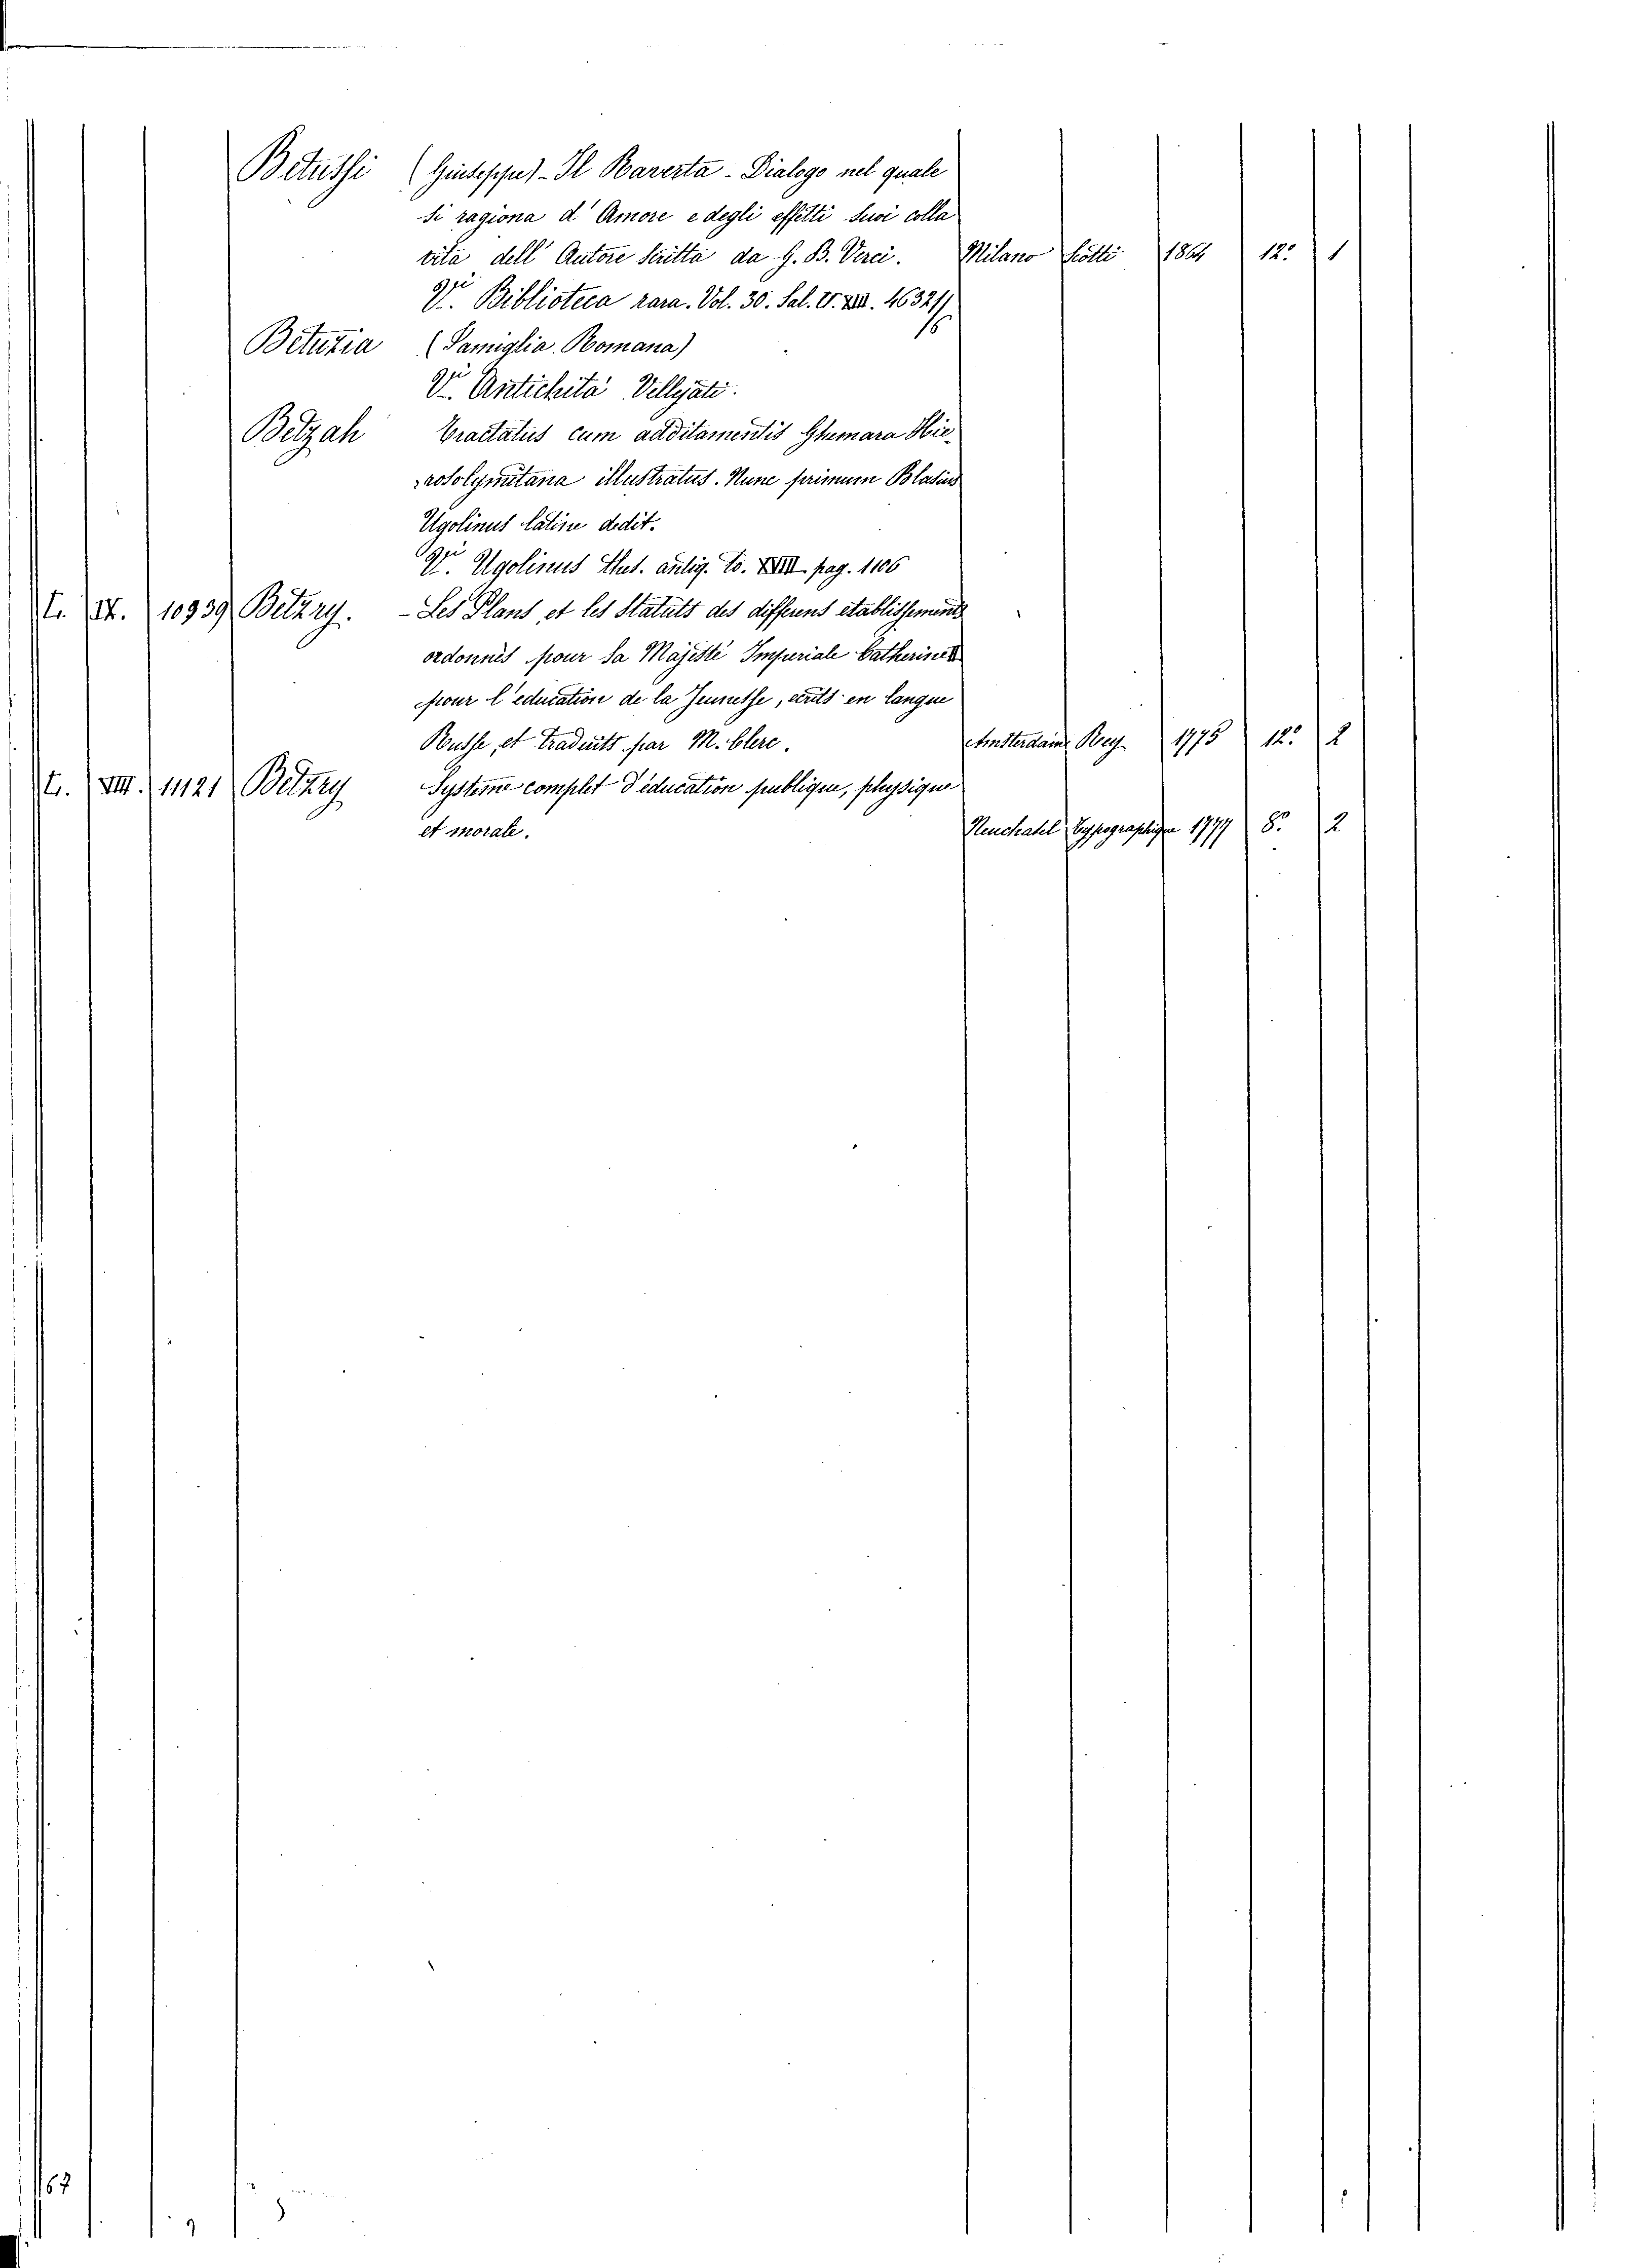 Betussi (Giuseppe) - Il Raverta - Dialogo nel quale
si ragiona d'Amore e degli effetti suoi colla
vita dell'Autore scritta da G. B. Verci. Milano 1864 12.° 1
V.i Biblioteca rara. Vol. 30. Sal. II. XIII. 4632/1
Betuzia (Famiglia Romana)
V.i Antichità Vellejati.
Betzah Tractatus cum additamentis Ghemara Hie-
rosolymitana illustratus. Nunc primum Blasius
Ugolinus latine dedit.
V.i Ugolinus Thes. antiq. to. XVIII pag. 1106
T. IX. 10939 Betzry. - Les Plans et les Statuts des differens établissements
ordonnés pour Sa Majesté Imperiale Catherine II
pour l'education de la Jeunesse, ecrits en langue
Russe, et traduits par M. Clerc. Amsterdam Rey 1775 12.° 2
T. VIII. 11121 Betzry Systeme complet d'éducation publique, physique
et morale. Neuchatel Typographique 1777 8.° 2
67